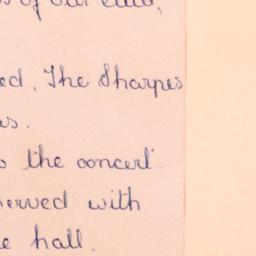 of our club,
ed. The Sharpes
the concert.
served with
hall.